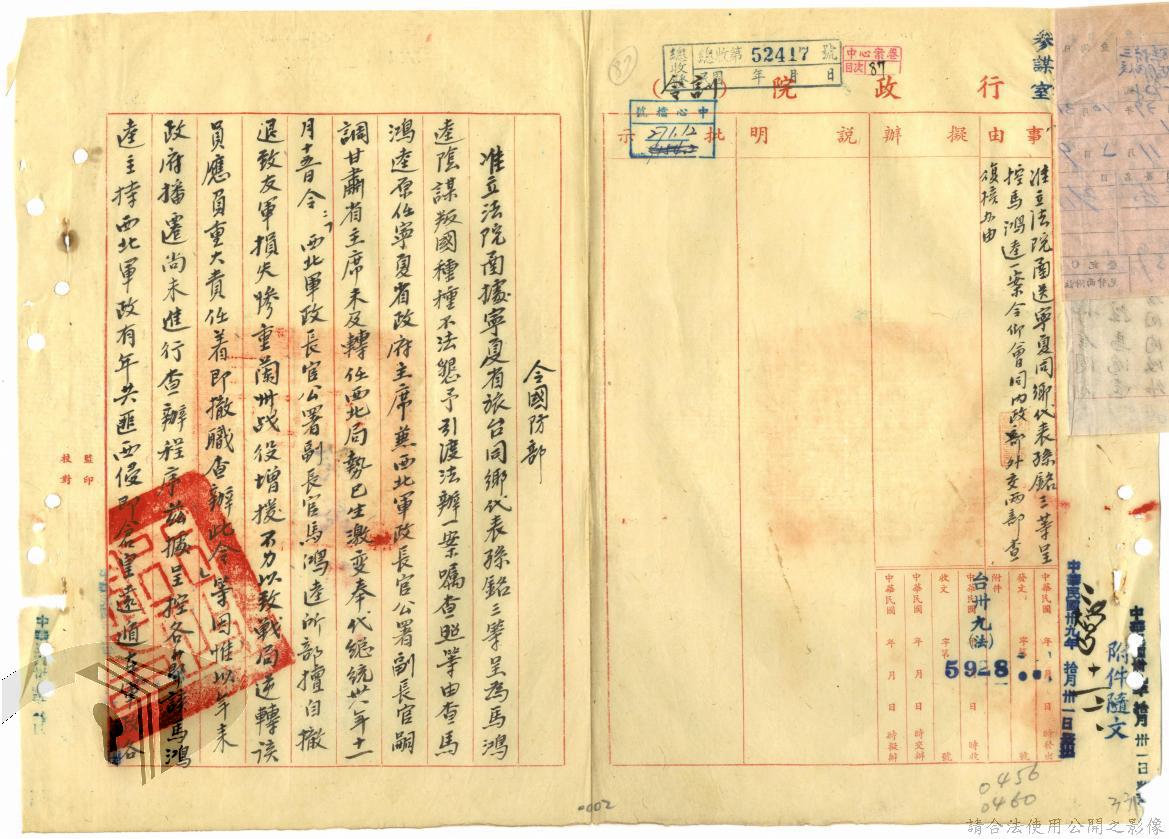 參謀室
行政院(訓令)
總收發
總收第52417號
民國 年 月 日
中心案卷
目次 87
87
中心檔號
271.12
事由
擬辦
說明
批示
准立法院函送寧夏同鄉代表孫銘三等呈
控馬鴻逵一案令仰會同內政部外交兩部查
復核办由
中華民國 年 月 日 時發出
發文 字第 號
附件
中華民國 年 月 日 時收
收文 字第 號
中華民國 年 月 日 時交辦
中華民國 年 月 日 時擬辦
台卅九(法)
5928
中華民國卅九年 拾月 卅一日
附件隨文
令國防部
准立法院函據寧夏省旅台同鄉代表孫銘三等呈為馬鴻
逵陰謀叛國種種不法懇予引渡法辦一案囑查照等由查馬
鴻逵原任寧夏省政府主席兼西北軍政長官公署副長官嗣
調甘肅省主席未及轉任西北局勢已生激變奉代總統卅八年十一
月十五日令「西北軍政長官公署副長官馬鴻逵所部擅自撤
退致友軍損失慘重蘭州战役增援不力以致戰局逆轉該
員應負重大責任着即撤職查辦此令」等因惟以年來
政府播遷尚未進行查辦程序茲據呈控各節該馬鴻
逵主持西北軍政有年共匪西侵即倉皇遠遁
監印
校對
0002
0456
0460
請合法使用公開之影像